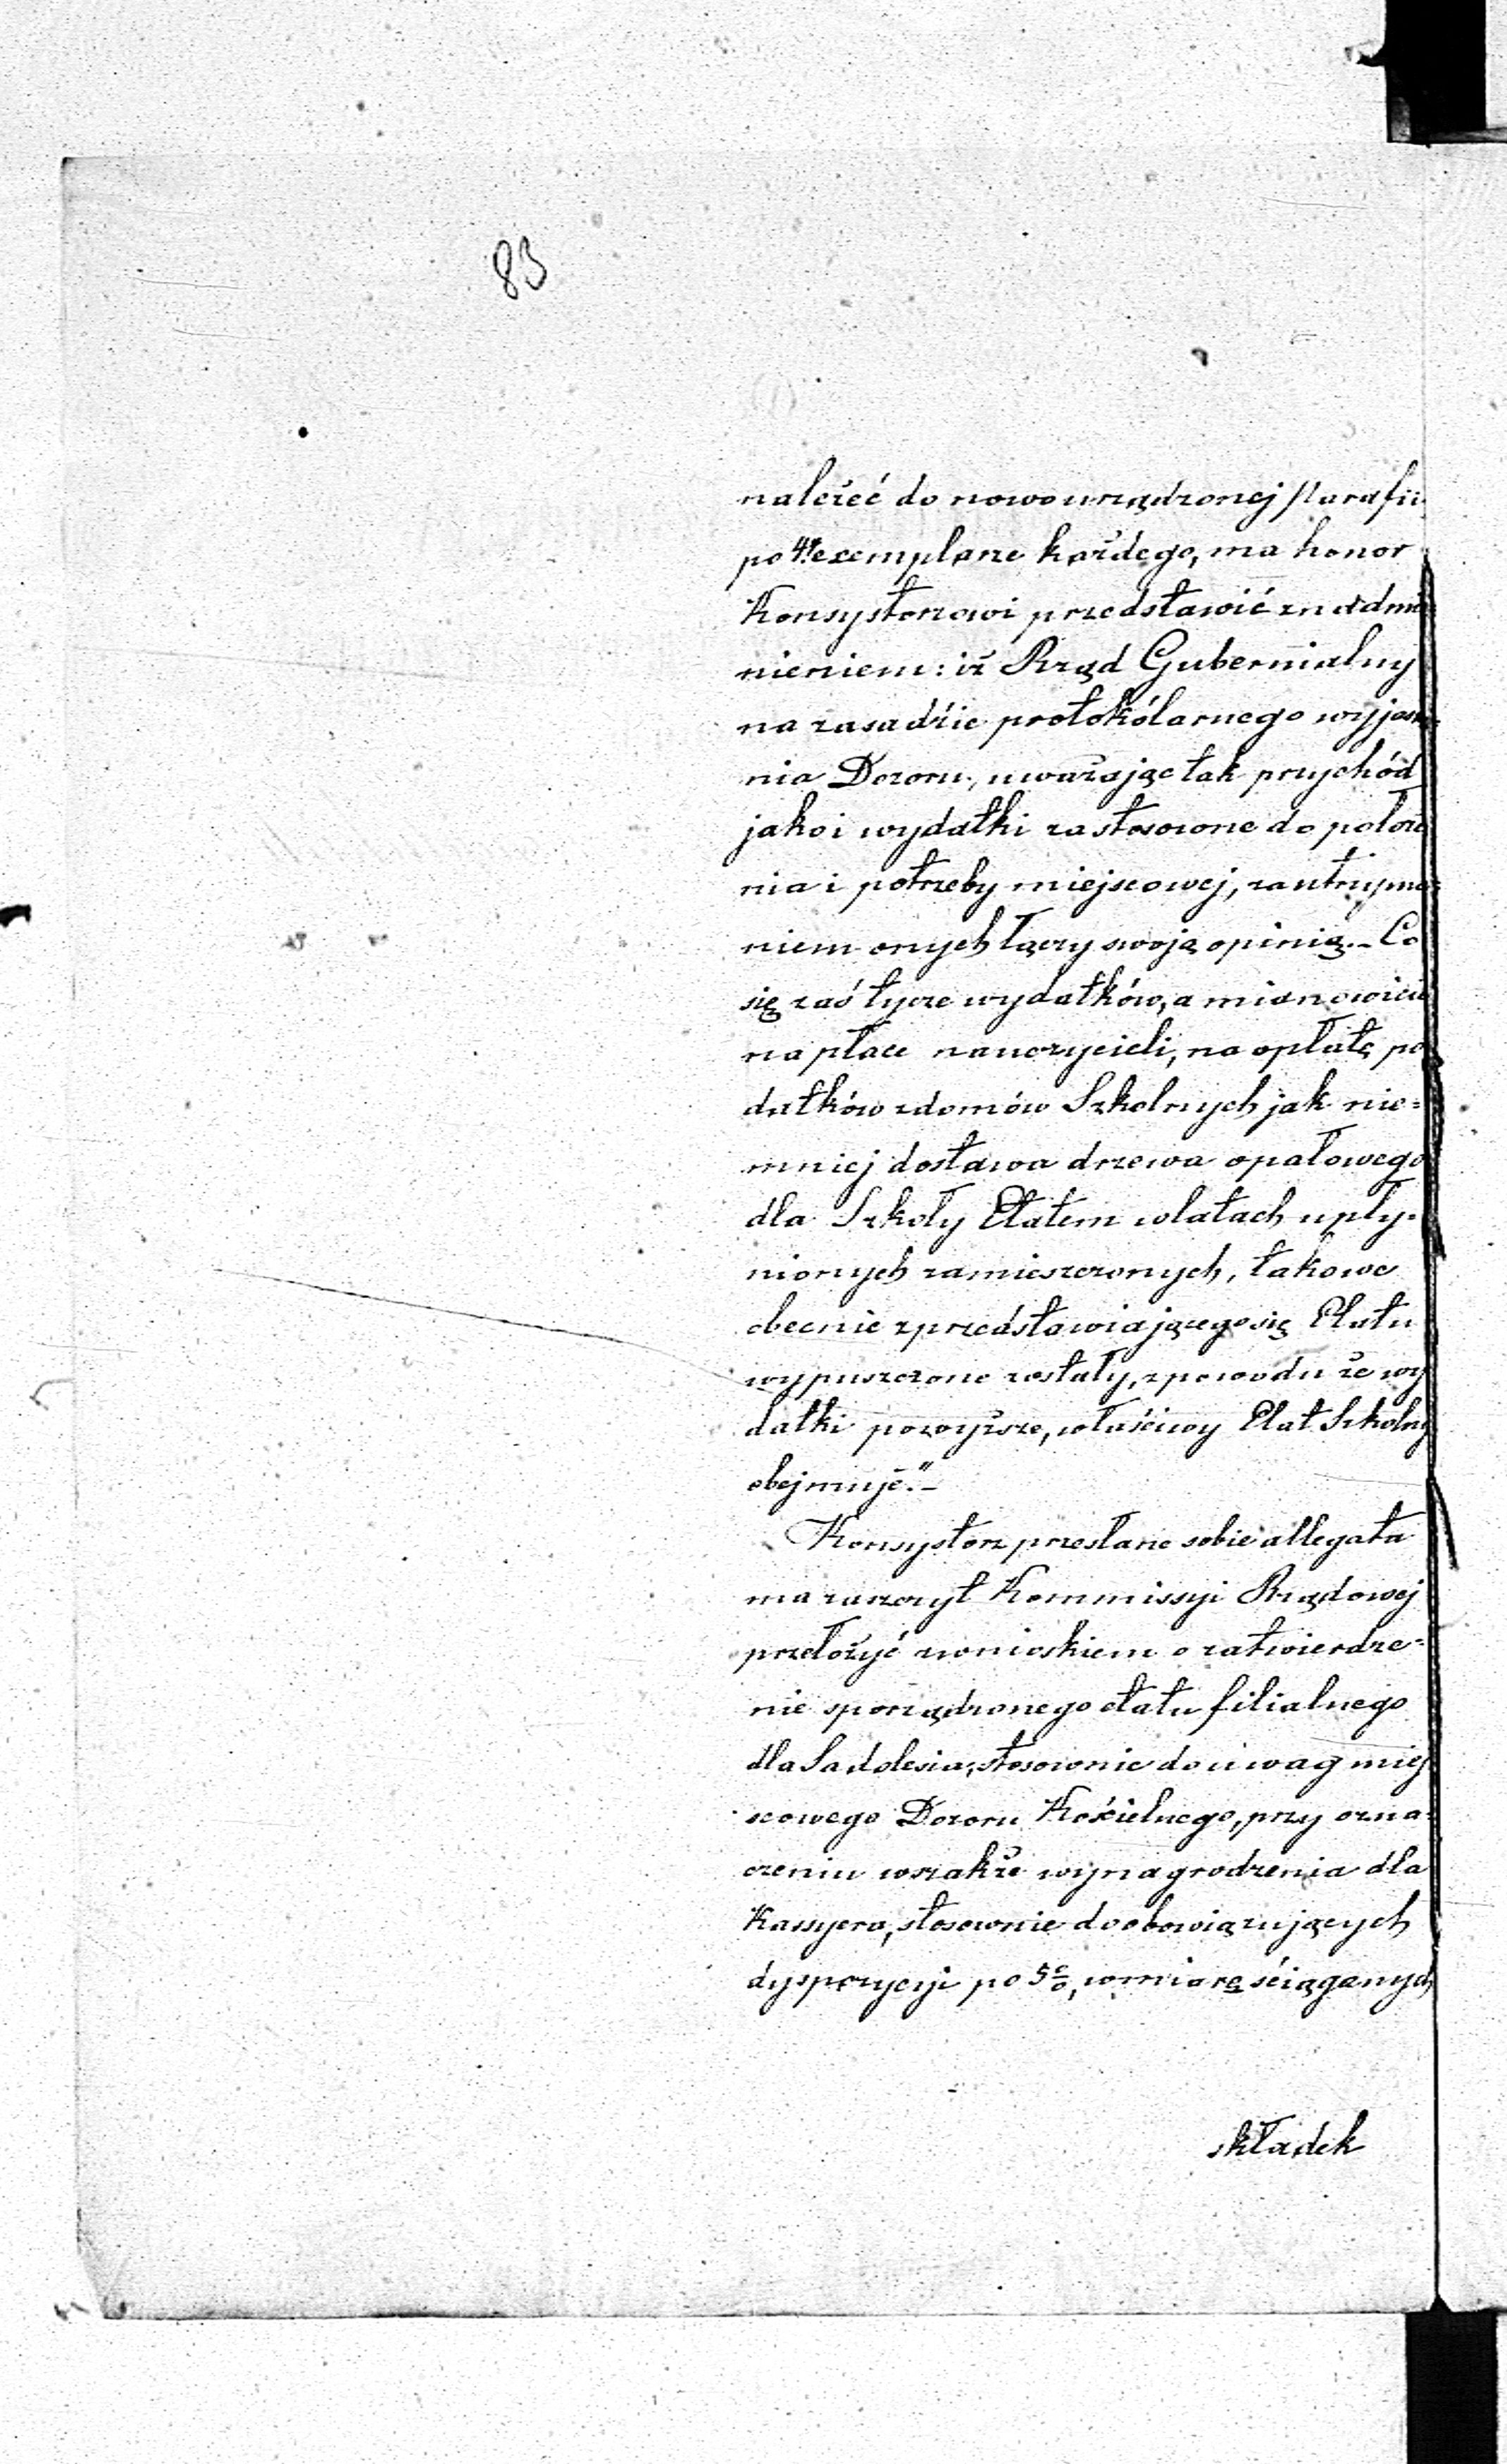 83
należeć do nowourządzonej Parafii
po 4. exemplarze każdego, ma honor
Konsystorzowi przedstawić z nadmie
nieniem: iż Rząd Gubernialny
na zasadzie protokólarnego wyjaśnie=
nia Dozoru, uważając tak przychód
jako i wydatki zastosowane do położe
nia i potrzeby miejscowej, za utrzyma=
niem onych łączy swoją opinią.- Co
się zaś tycze wydatków, a mianowicie
na płace nauczycieli, na opłatę po
datków z domów Szkolnych jak nie=
mniej dostawa drzewa opałowego
dla Szkoły Etatem w latach upły=
nionych zamieszczonych, takowe
obecnie z przedstawiającego się Etatu
wypuszczone zostały, z powodu że wy
datki powyższe, właściwy Etat Szkolny
obejmuje."-
Konsystorz przesłane sobie allegata
ma zaszczyt Kommissyi Rządowej
przełożyć z wnioskiem o zatwierdze=
nie sporządzonego etatu filialnego
dla Sadolesia, stosownie do uwag miej
scowego Dozoru Kościelnego, przy ozna=
czeniu wszakże wynagrodzenia dla
Kassyera, stosownie do obowiązujących
dyspozycyi po 5%, w miarę ściąganych
składek